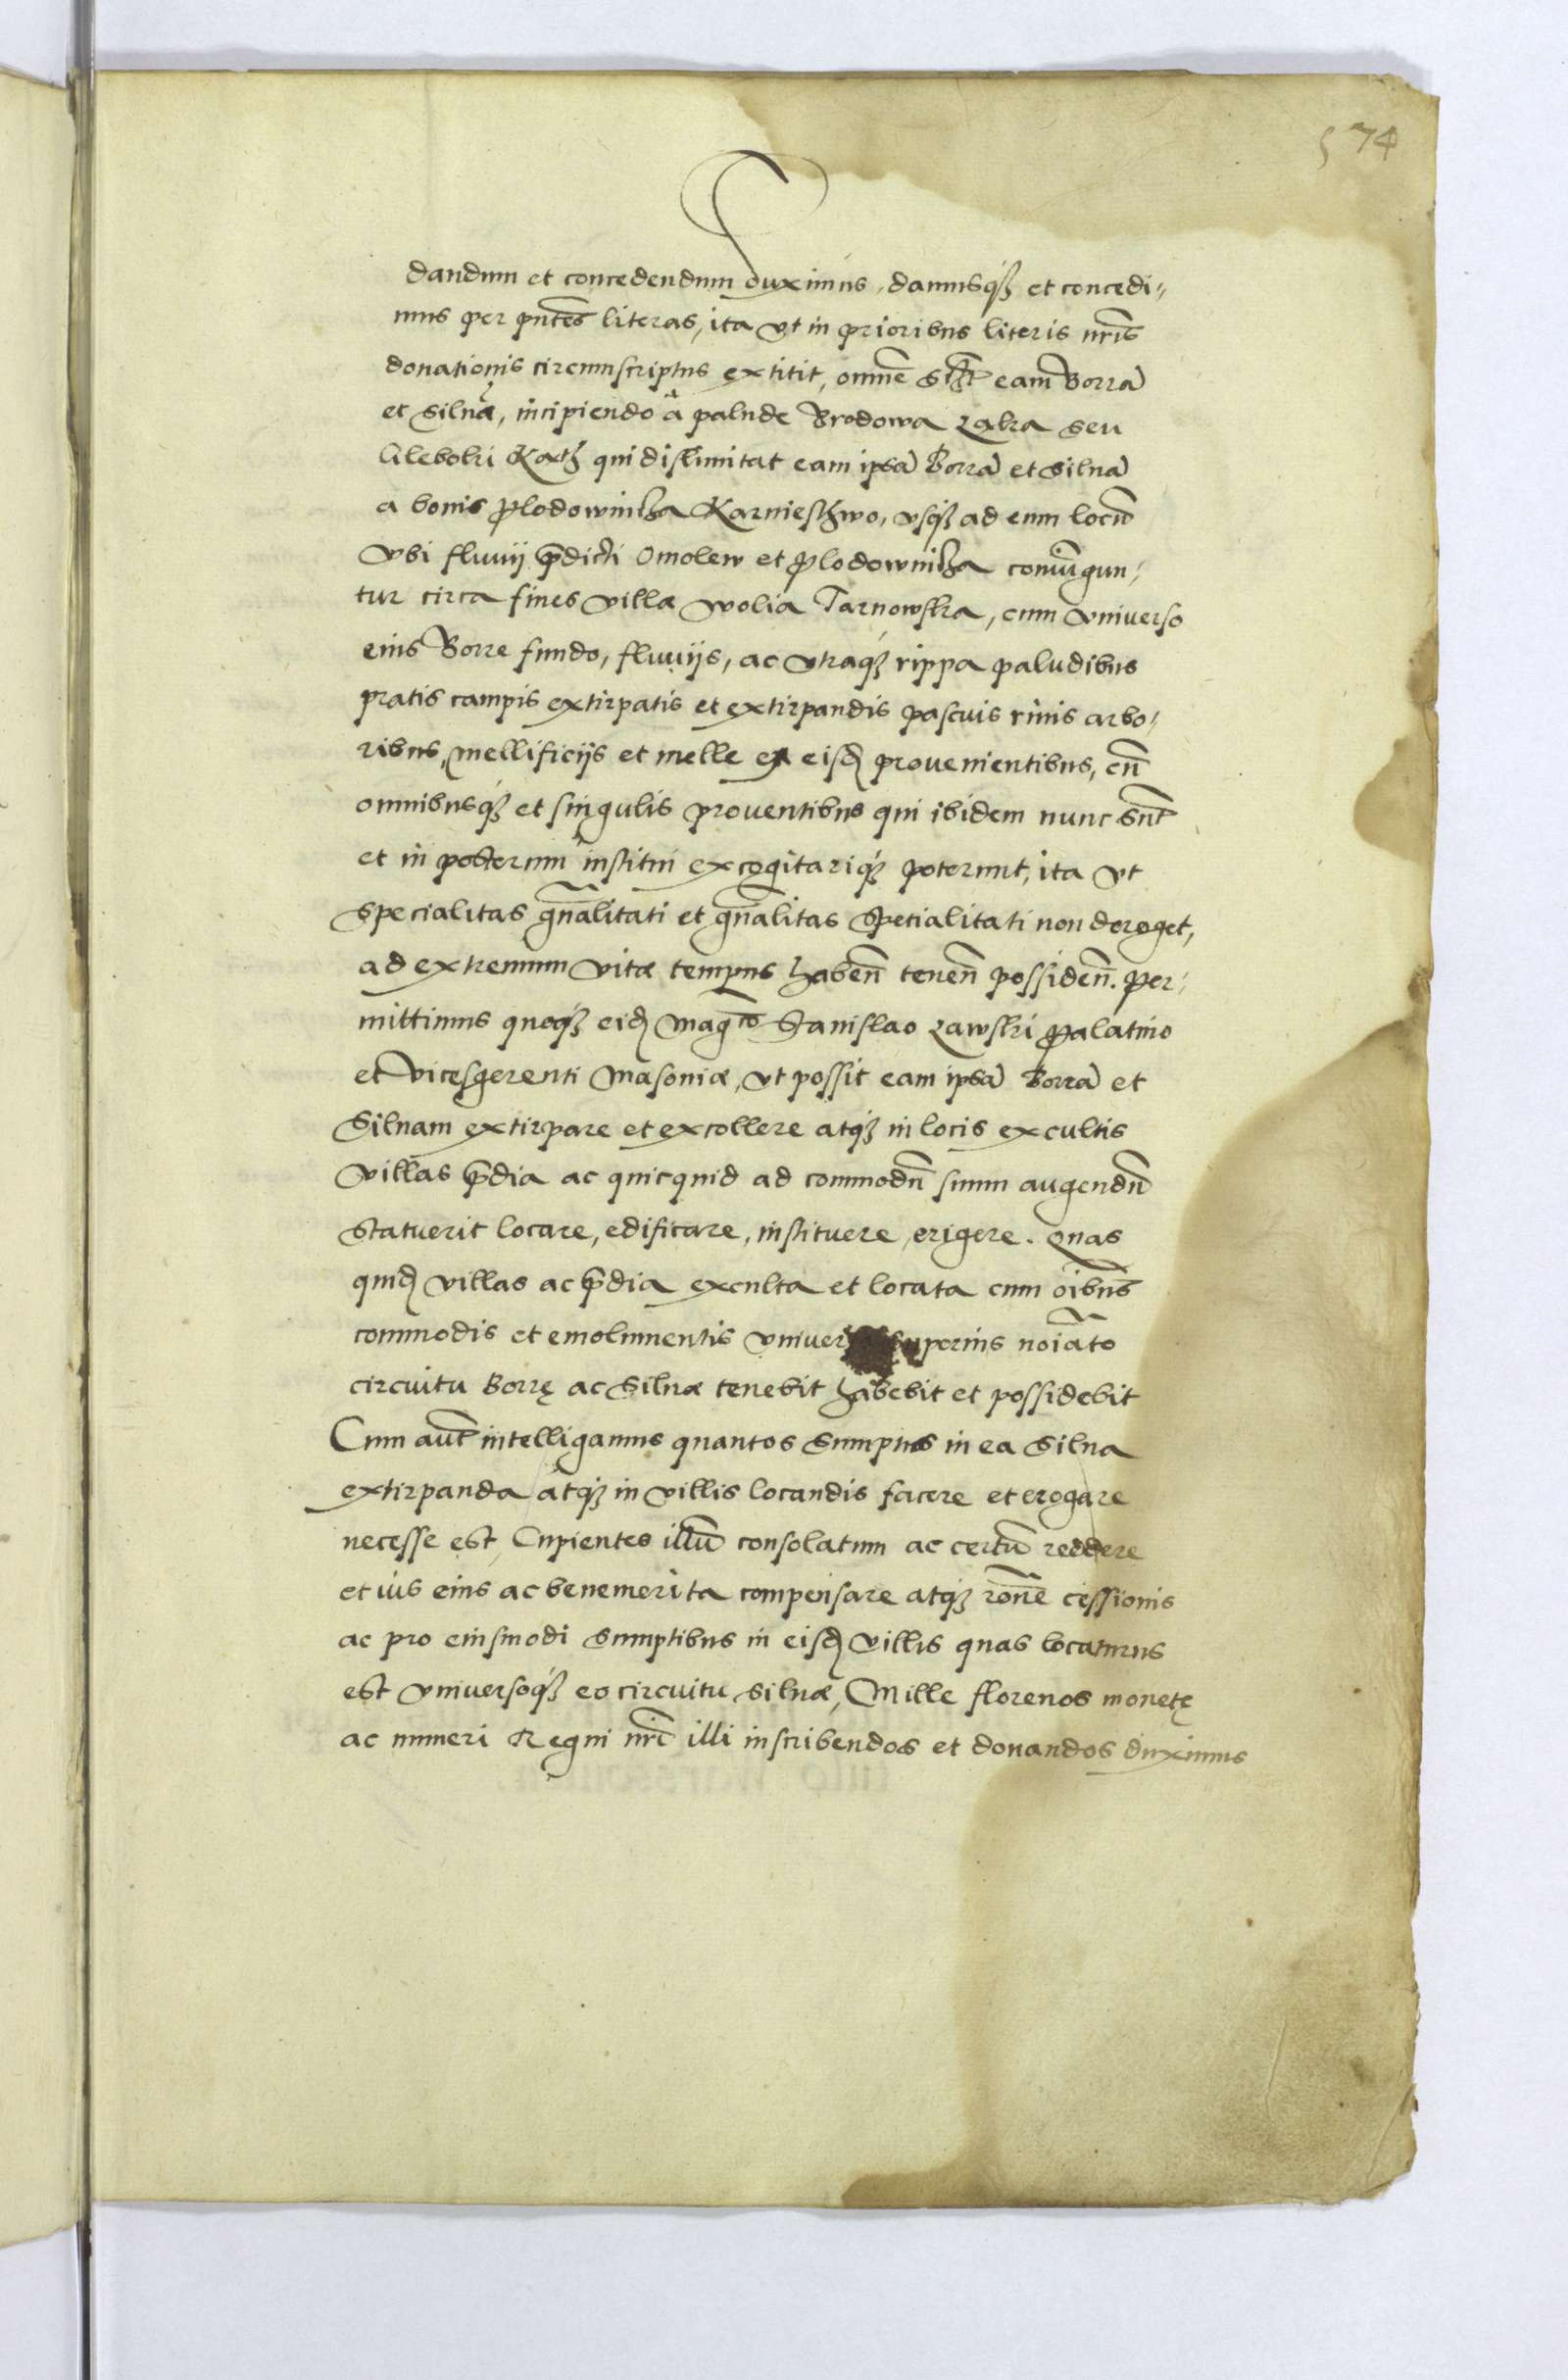 574
dandum et concedendum duximus, damusqȝ et concedi⸗
mus per pntes literas, ita vt in prioribus literis nris
donationis circumscriptus extitit, omnem eam Borrã
et silvã, incipiendo à palude Brodowa Laka seu
Glęboki Kath qui dislimitat eam ipsã Borrã et silvã
a bonis Plodownicha Karnieschwo, vsqȝ ad eum locũ
Vbi fluuij p̃dicti Omolew et Plodownicha coniũgun⸗
tur circa fines villæ wolia Tarnowska, cum vniuerso
eius Borre fundo, fluuijs, ac vtraqȝ rippa paludibus
pratis campis extirpatis et extirpandis pascuis rivis arbo⸗
ribus, mellificijs et melle ex eisd prouenientibus, cũ
omnibusqȝ et singulis prouentibus qui ibidem nunc sũt
et in posterum institui excogitariqȝ poterunt, ita vt
specialitas gñalitati et gñalitas specialitati non deroget,
ad extremum vitæ tempus habeñ teneñ possideñ. Per⸗
mittimus quoqȝ eid Mag^co Stanislao Lawski Palatino
et Vicesgerenti Masoniæ, vt possit eam ipsã Borrã et
Silvam extirpare et excollere atqȝ in locis excultis
villas p̃dia ac quicquid ad commodũ suum augendũ
statuerit locare, edificare, instituere, erigere. Quas
quid villas ac p̃dia exculta et locata cum oĩbus
commodis et emolumentis vniuer superius noiãto
circuitu Borrę ac Silvæ tenebit habebit et possidebit
Cum aũt intelligamus quantos sumptus in ea silva
extirpanda atqȝ in villis locandis facere et erogare
necesse est, Cupientes illũ consolatum ac certũ reddere
et ius eius ac benemerita compensare atqȝ rõne cessionis
ac pro eiusmodi sumptibus in eisd villis quas locaturus
est vniuersoqȝ eo circuitu silvæ, Mille florenos monetę
ac numeri Regni nri illi inscribendos et donandos duximus